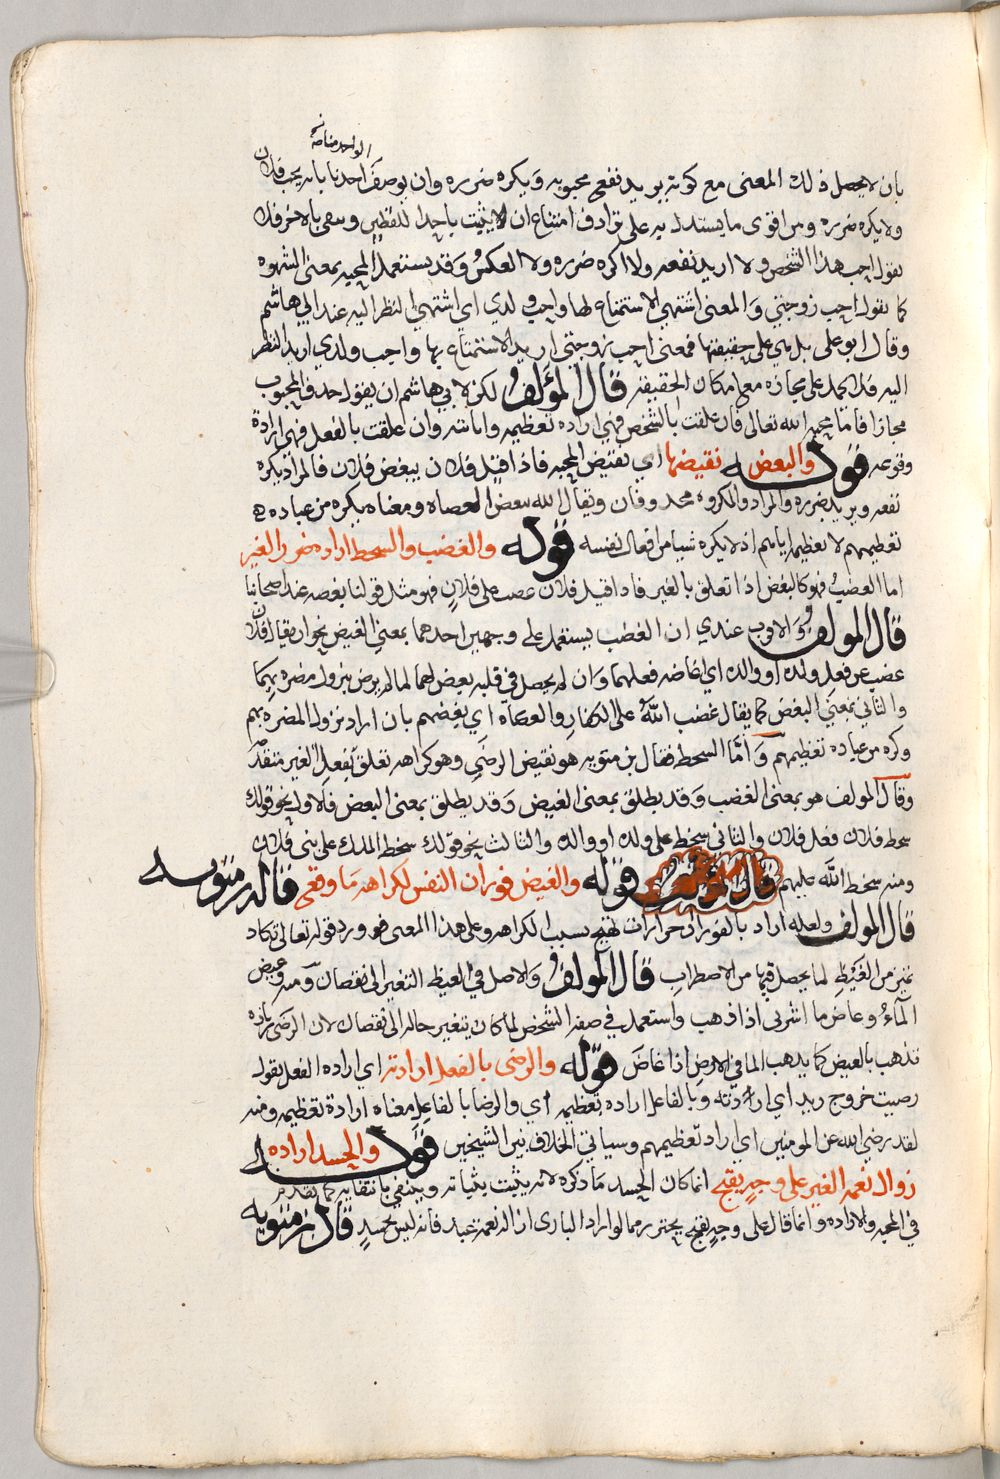 الواحد منا صح
بان لا يحصل ذلك المعنى مع كونه يريد نفع محبوبه ويكره ضرره وان يوصف احدنا بانه يحب فلان
ولا يكره ضرره ومن اقوى ما يستدل به على ترادف امتناع ان لا يثبت باحد اللفظين وينفى بالاخر فلا
نقول احب هذا الشخص ولا اريد نفعه ولا اكره ضرره ولا العكس وقد يستعمل المحبه بمعنى الشهوه
كما نقول احب زوجتي والمعنى اشتهي الاستمتاع لها واحب ولدي اي اشتهي النظر اليه عند ابي هاشم
وقال ابو علي بل هي على حقيقتها فمعنى احب زوجتي اريد الاستمتاع بها واحب ولدي اريد النظر
اليه فلا تحمل على مجازه مع امكان الحقيقة قال المؤلف لكن لابي هاشم ان يقول حذف المحبوب
مجازا فاما محبه الله تعالى فان علقت بالشخص فهي اراده تعظيمه واثابته وان علقت بالفعل فهي ارادة
وقوعه قوله والبغض نقيضها اي نقيض المحبه فاذا قيل فلان يبغض فلان فالمراد يكره
نفعه ويريد ضرره والمراد والمكروه محذوفان ويقال الله يبغض العصاه ومعناه يكره من عباده
تعظيمهم لا تعظيمه اياهم اذ لا يكره شيا من افعال نفسه قوله والغضب والسخط اراده ضرر الغير
اما الغضب فهو كالبغض اذا تعلق بالغير فاذا قيل فلان غضب على فلان فهو مثل قولنا يبغضه عند اصحابنا
قال المولف والاقرب عندي ان الغضب يستعمل على وجهين احدهما بمعنى الغيض نحو ان يقال فلان
غضب عن فعل ولده او والده اي اغاضه فعلهما وان لم يحصل في قلبه بغض لهما لما لم يرض بنزول مضره بهما
والثاني بمعنى البغض كما يقال غضب الله على الكفار والعصاة اي يبغضهم بان اراد نزول المضره بهم
وكره من عباده تعظيمهم واما السخط فقال بن متويه هو نقيض الرضى وهو كراهه تعلق بفعل الغير متقد
وقال المولف هو بمعنى الغضب وقد يطلق بمعنى الغيض وقد يطلق بمعنى البغض فالاول نحو قولك
سخط فلان فعل فلان والثاني سخط على ولده او والده والثالث نحو قولك سخط الملك على بني فلان
ومنه سخط الله عليهم قوله والغيض فوران النفس لكراهه ما وقع قال بن متويه
قال المولف ولعله اراد بالفوران حرارات تهيج بسبب الكراهه وعلى هذا المعنى فهو ورد قوله تعالى تكاد
تميز من الغيظ لما يحصل فيها من الاضطراب قال المولف والاصل في الغيظ التغير الى نقصان ومنه وغيض
الماء وغاض ما اشربى اذا ذهب واستعمل في صفه الشخص لما كان يتغير حاله الى نقصان لان الرضى
تذهب بالغيض كما يذهب الما في الارض اذا غاض قوله والرضى بالفعل ارادته اي اراده الفعل يقول
رضيت خروج زيد اي اردته وبالفاعل اراده تعظيمه اي والرضا بالفاعل معناه ارادة تعظيمه ومنه
لقد رضي الله عن المومنين اي اراد تعظيمهم وسياتي الخلاف بين الشيخين قوله والحسد اراده
زوال نعمه الغير على وجه يقبح انما كان الحسد ما ذكره لانه يثبت بثباته وينتفي بانتفايه كما تقدم
في المحبه والاراده وانما قال على وجه يقبح يحترز مما لو اراد الباري ازاله نعمة عبد فانه ليس بحسد قال بن متويه